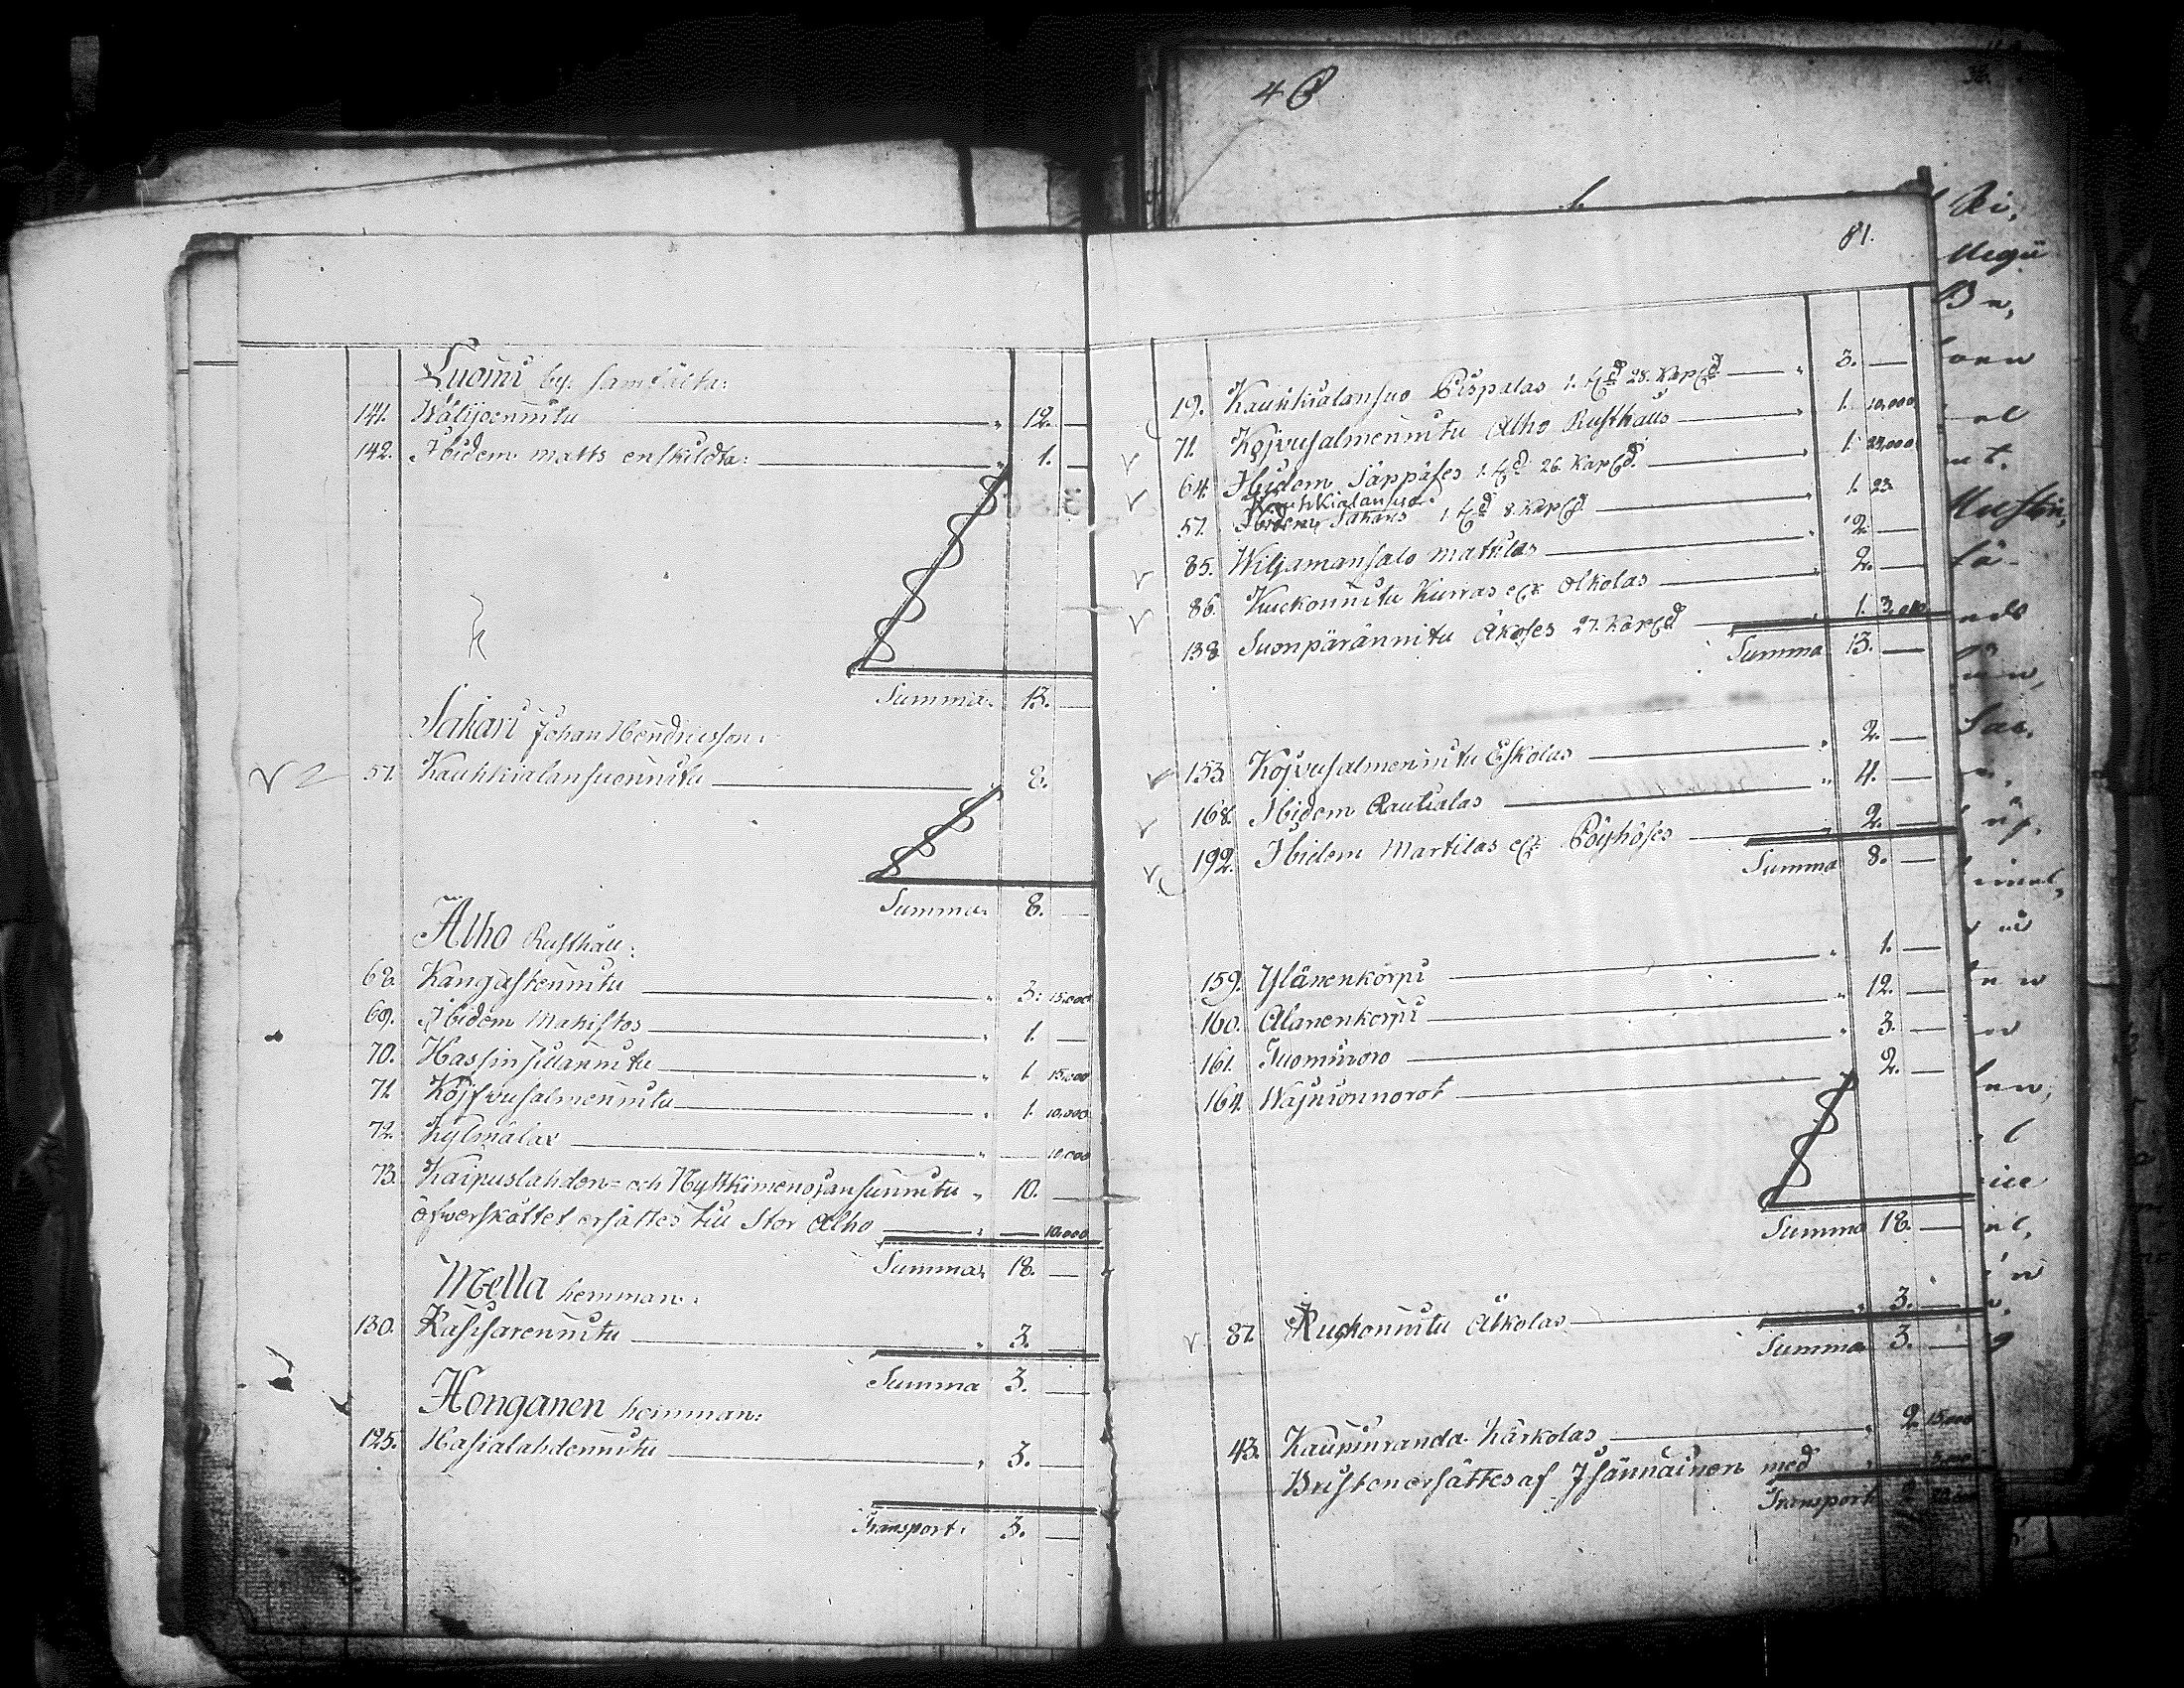 Luomi by: samfälta:
141. Wälijoennitu " 12. —
142. Ibidem matts enskildta: " 1. —
Summa. 13. —
Sakari Johan Hendricsson:
57. Kauhkialansuonnitu " 8.
Summa. 8. —
Alho Rusthåll:
68. Kangastennitu " 3. 15,000
69. Ibidem Makistos " 1. —
70. Hassinsillannitu " 1. 15,000
71. Kojfvusalmennitu " 1. 10,000
72. Kylmälax " — 10,000
73. Kaipuslahden- och Nyttkimenojansunnitu " 10. —
öfwerskottet ersättes till Stor Alho " — 10,000
Summa. 18. —
Mella hemman:
130. Kasisarennitu " 3. —
Summa 3. —
Honganen hemman:
125. Hasialahdennitu " 3. —
Transport. 3. —
46
81.
19. Kauhkialansuo Pispalas 1. 28. Kap " 3. —
71. Kojvusalmennitu Alho Rusthålls " 1. 10,000
64. Ibidem Säppäses 1. 26. Kap " 1. 23,000
Kauhkialansuo
57. Ibidem Sakaris 1. 8. Kap " 1. 23
85. Wiljamansalo Mattilas " 2. —
86. Kuckonnitu Kurras Olkolas " 2. —
138. Suonpärännitu Äkäses 27. Kap " 1. 3,000
Summa 13. —
153. Kojvusalmennitu Eskolas " 2. —
168. Ibidem Rautialas " 4. —
192. Ibidem Martilas Pöyhöses 2. —
Summa 8. —
159. Ylänenkorpi " 1. —
160. Alanenkorpi " 12. —
161. Tuominoro " 3. —
164. Wajnionnorot 2. —
Summa 18. —
87. Kuckonnitu Älkolas " 3. —
Summa 3. —
43. Kaupinranda Kärkolas " 2. 15,000
Bristen ersättes af Isännäinen med " — 5,000
Transport 2.